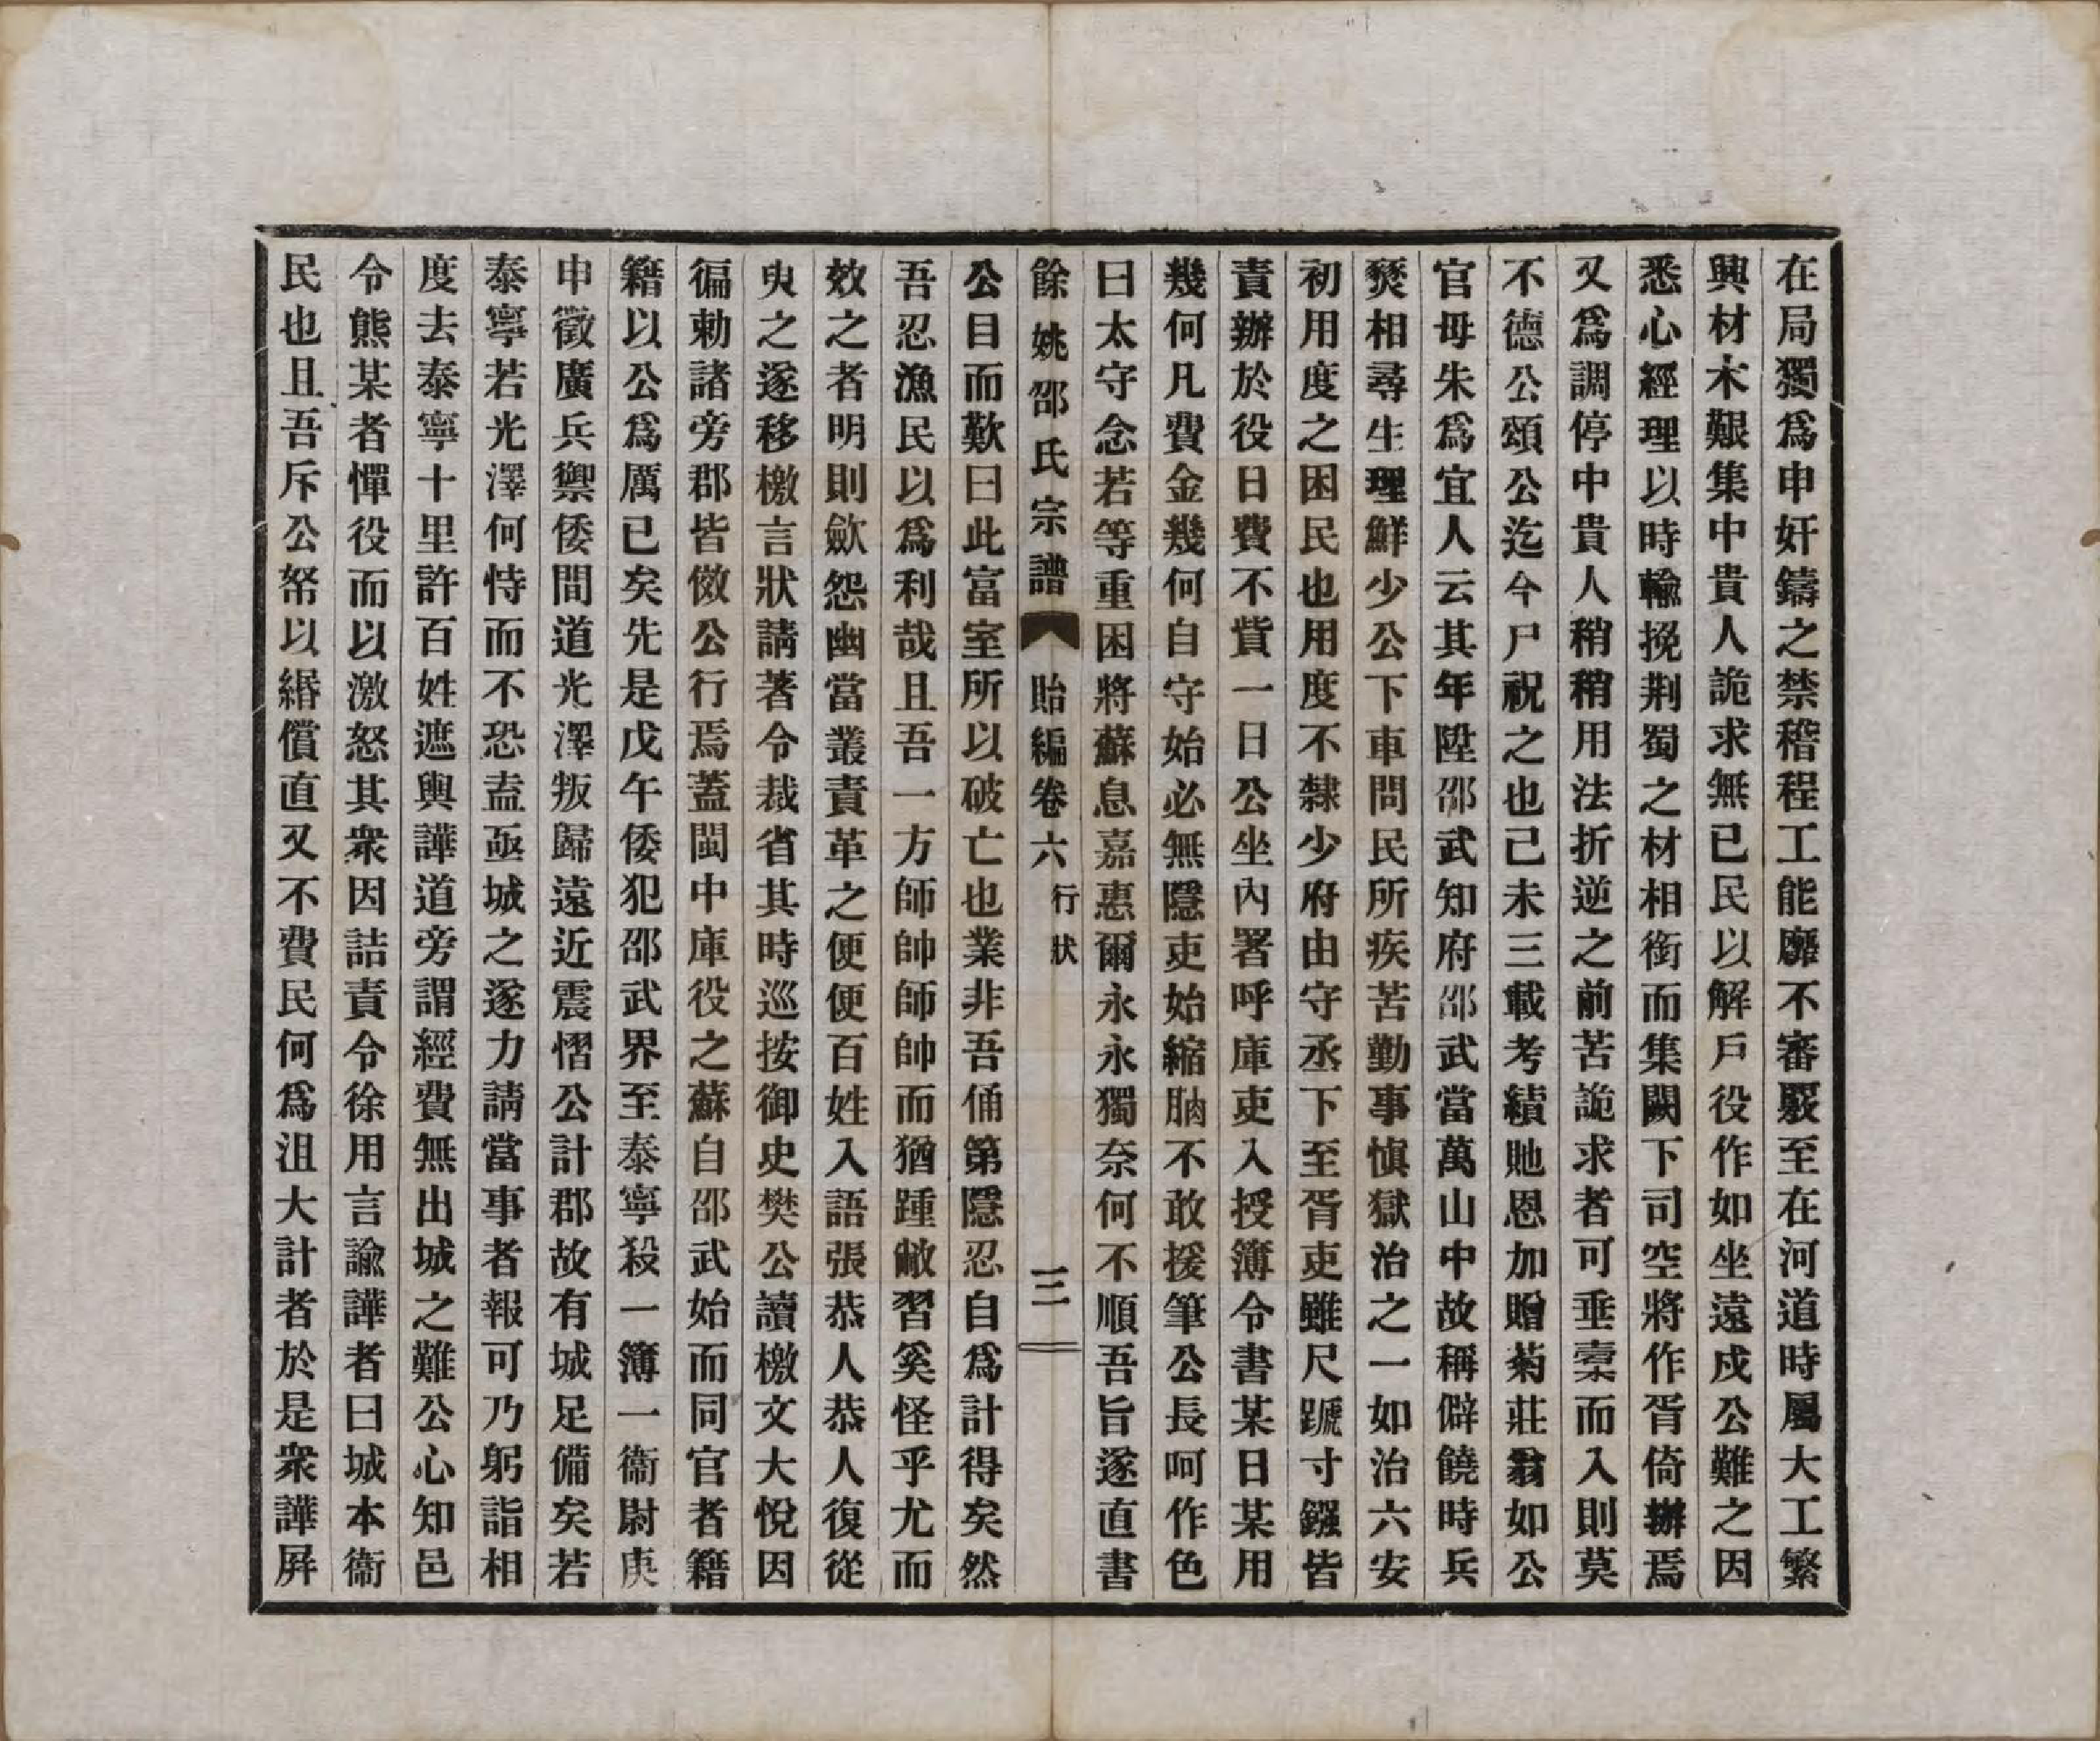 在局獨爲申奸鑄之禁稽程工能靡不審覈至在河道時屬大工繁
興材木艱集中貴人詭求無已民以解戶役作如坐遠戍公難之因
悉心經理以時輸挽荆蜀之材相銜而集闕下司空將作胥倚辦焉
又爲調停中貴人稍稍用法折逆之前苦詭求者可垂橐而入則莫
不德公頌公迄今尸祝之也己未三載考績貤恩加贈菊莊翁如公
官母朱爲宜人云其年陞邵武知府邵武當萬山中故稱僻饒時兵
燹相尋生理鮮少公下車問民所疾苦勤事慎獄治之一如治六安
初用度之困民也用度不隸少府由守丞下至胥吏雖尺蹏寸鏹皆
責辦於役日費不貲一日公坐內署呼庫吏入授簿令書某日某用
幾何凡費金幾何自守始必無隱吏始縮朒不敢援筆公長呵作色
曰太守念若等重困將蘇息嘉惠爾永永獨奈何不順吾旨遂直書
餘姚邵氏宗譜 貽編卷六 行狀 三
公目而歎曰此富室所以破亡也業非吾俑第隱忍自爲計得矣然
吾忍漁民以爲利哉且吾一方師帥師帥而猶踵敝習奚怪乎尤而
效之者明則歛怨幽當叢責革之便便百姓入語張恭人恭人復從
臾之遂移檄言狀請著令裁省其時巡按御史樊公讀檄文大悅因
徧勅諸旁郡皆倣公行焉蓋閩中庫役之蘇自邵武始而同官者籍
籍以公爲厲已矣先是戊午倭犯邵武界至泰寧殺一簿一衞尉庚
申徵廣兵禦倭間道光澤叛歸遠近震慴公計郡故有城足備矣若
泰寧若光澤何恃而不恐盍亟城之遂力請當事者報可乃躬詣相
度去泰寧十里許百姓遮輿譁道旁謂經費無出城之難公心知邑
令熊某者憚役而以激怒其衆因詰責令徐用言諭譁者曰城本衞
民也且吾斥公帑以緡償直又不費民何爲沮大計者於是衆譁屛